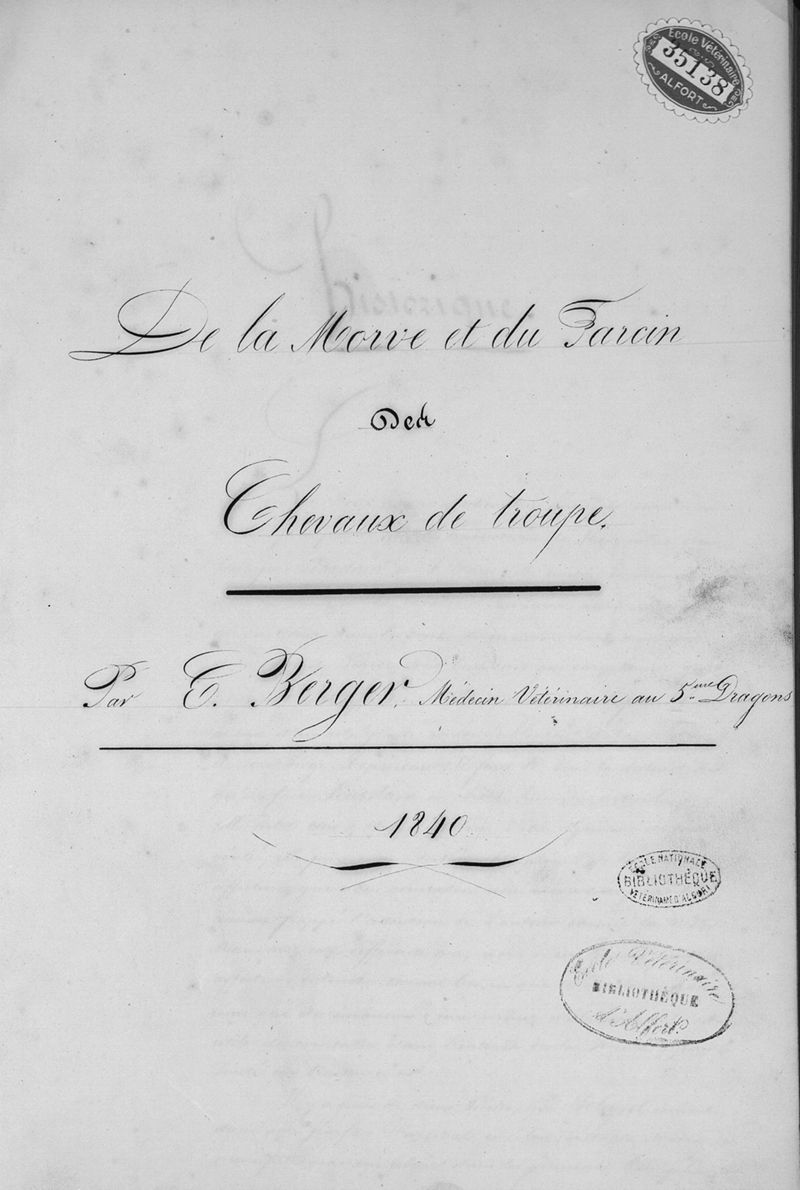 Ecole Vétérinaire
35138
ALFORT
De la Morve et du Farcin
Des
Chevaux de troupe.
Par E. Berger, Médecin Vétérinaire au 5.eme Dragons
1840.
ECOLE NATIONALE
BIBLIOTHÈQUE
VÉTÉRINAIRE D'ALFORT
Ecole Vétérinaire
BIBLIOTHÈQUE
d'Alfort